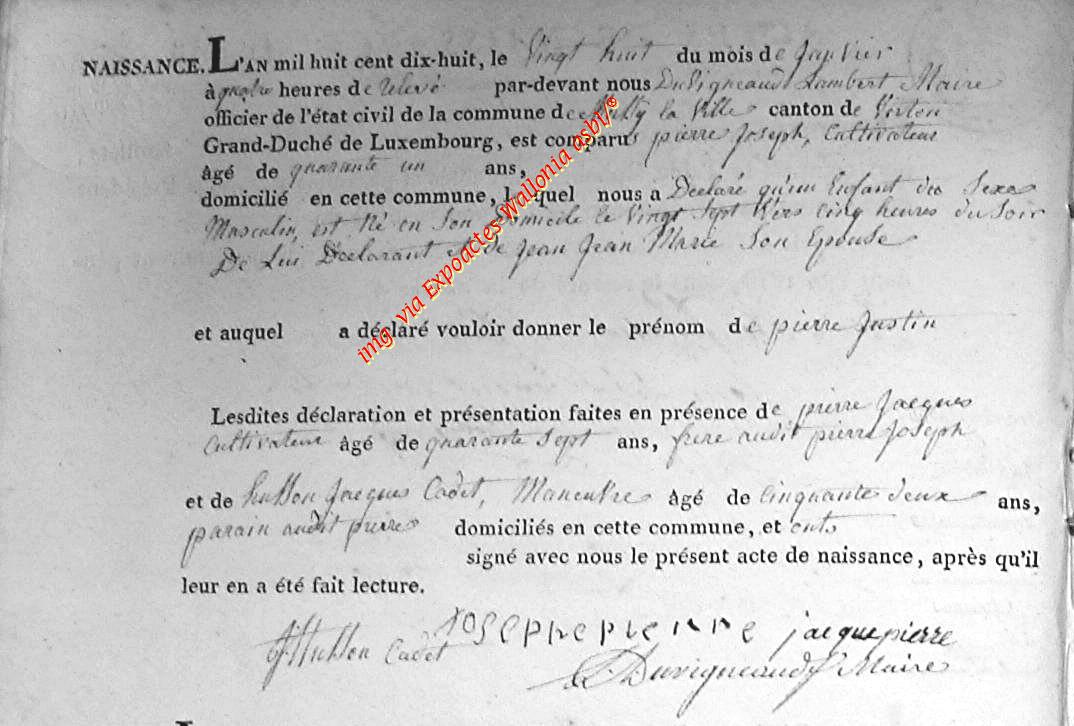 NAISSANCE. L'AN mil huit cent dix-huit, le Vingt huit du mois de Janvier
à quatre heures de relevé par-devant nous Duvigneaud Lambert Maire
officier de l'état civil de la commune de la Ville canton de Virton
Grand-Duché de Luxembourg, est comparu pierre Joseph, Cultivateur
âgé de quarante un ans,
domicilié en cette commune, lequel nous a Déclaré qu'un Enfant du Sexe
Masculin, est Né en Son Domicile le Vingt Sept Vers Cinq heures du Soir
De Lui Déclarant et de Jean Jean Marie Son Epouse
et auquel a déclaré vouloir donner le prénom de pierre Justin
Lesdites déclaration et présentation faites en présence de pierre Jacques
Cultivateur âgé de quarante Sept ans, frere audit pierre Joseph
et de husson Jacques Cadet, Maneuvre âgé de Cinquante deux ans,
parain audit pierre domiciliés en cette commune, et onts
signé avec nous le présent acte de naissance, après qu'il
leur en a été fait lecture.
JHusson Cadet Josephe pierre jacque pierre
Duvigneaud Maire
img via Expoactes Wallonia asbl/®